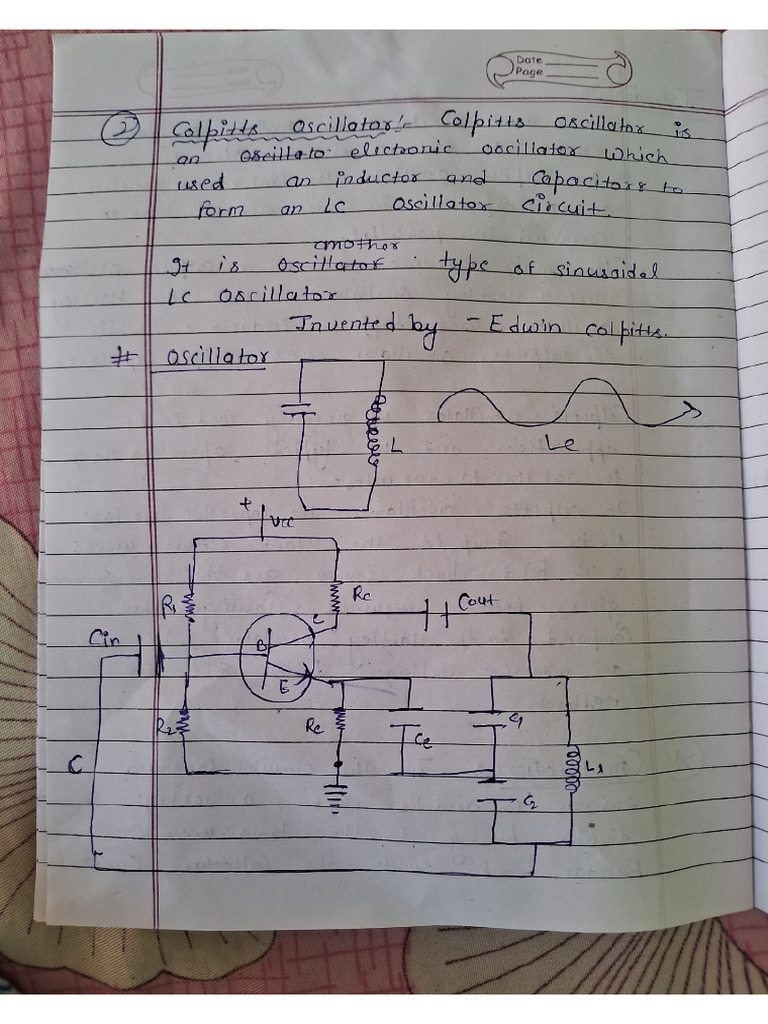 Date
Page
② Colpitts Oscillator:- Colpitts oscillator is
an oscillato electronic oscillator which
used an inductor and capacitors to
form an LC oscillator circuit.
another
It is oscillator type of sinusoidal
LC oscillator
Invented by - Edwin colpitts.
# oscillator
L
Le
+
Vcc
R1
Rc
Cout
Cin
C
B
E
R2
Re
Ce
C1
L1
C2
C